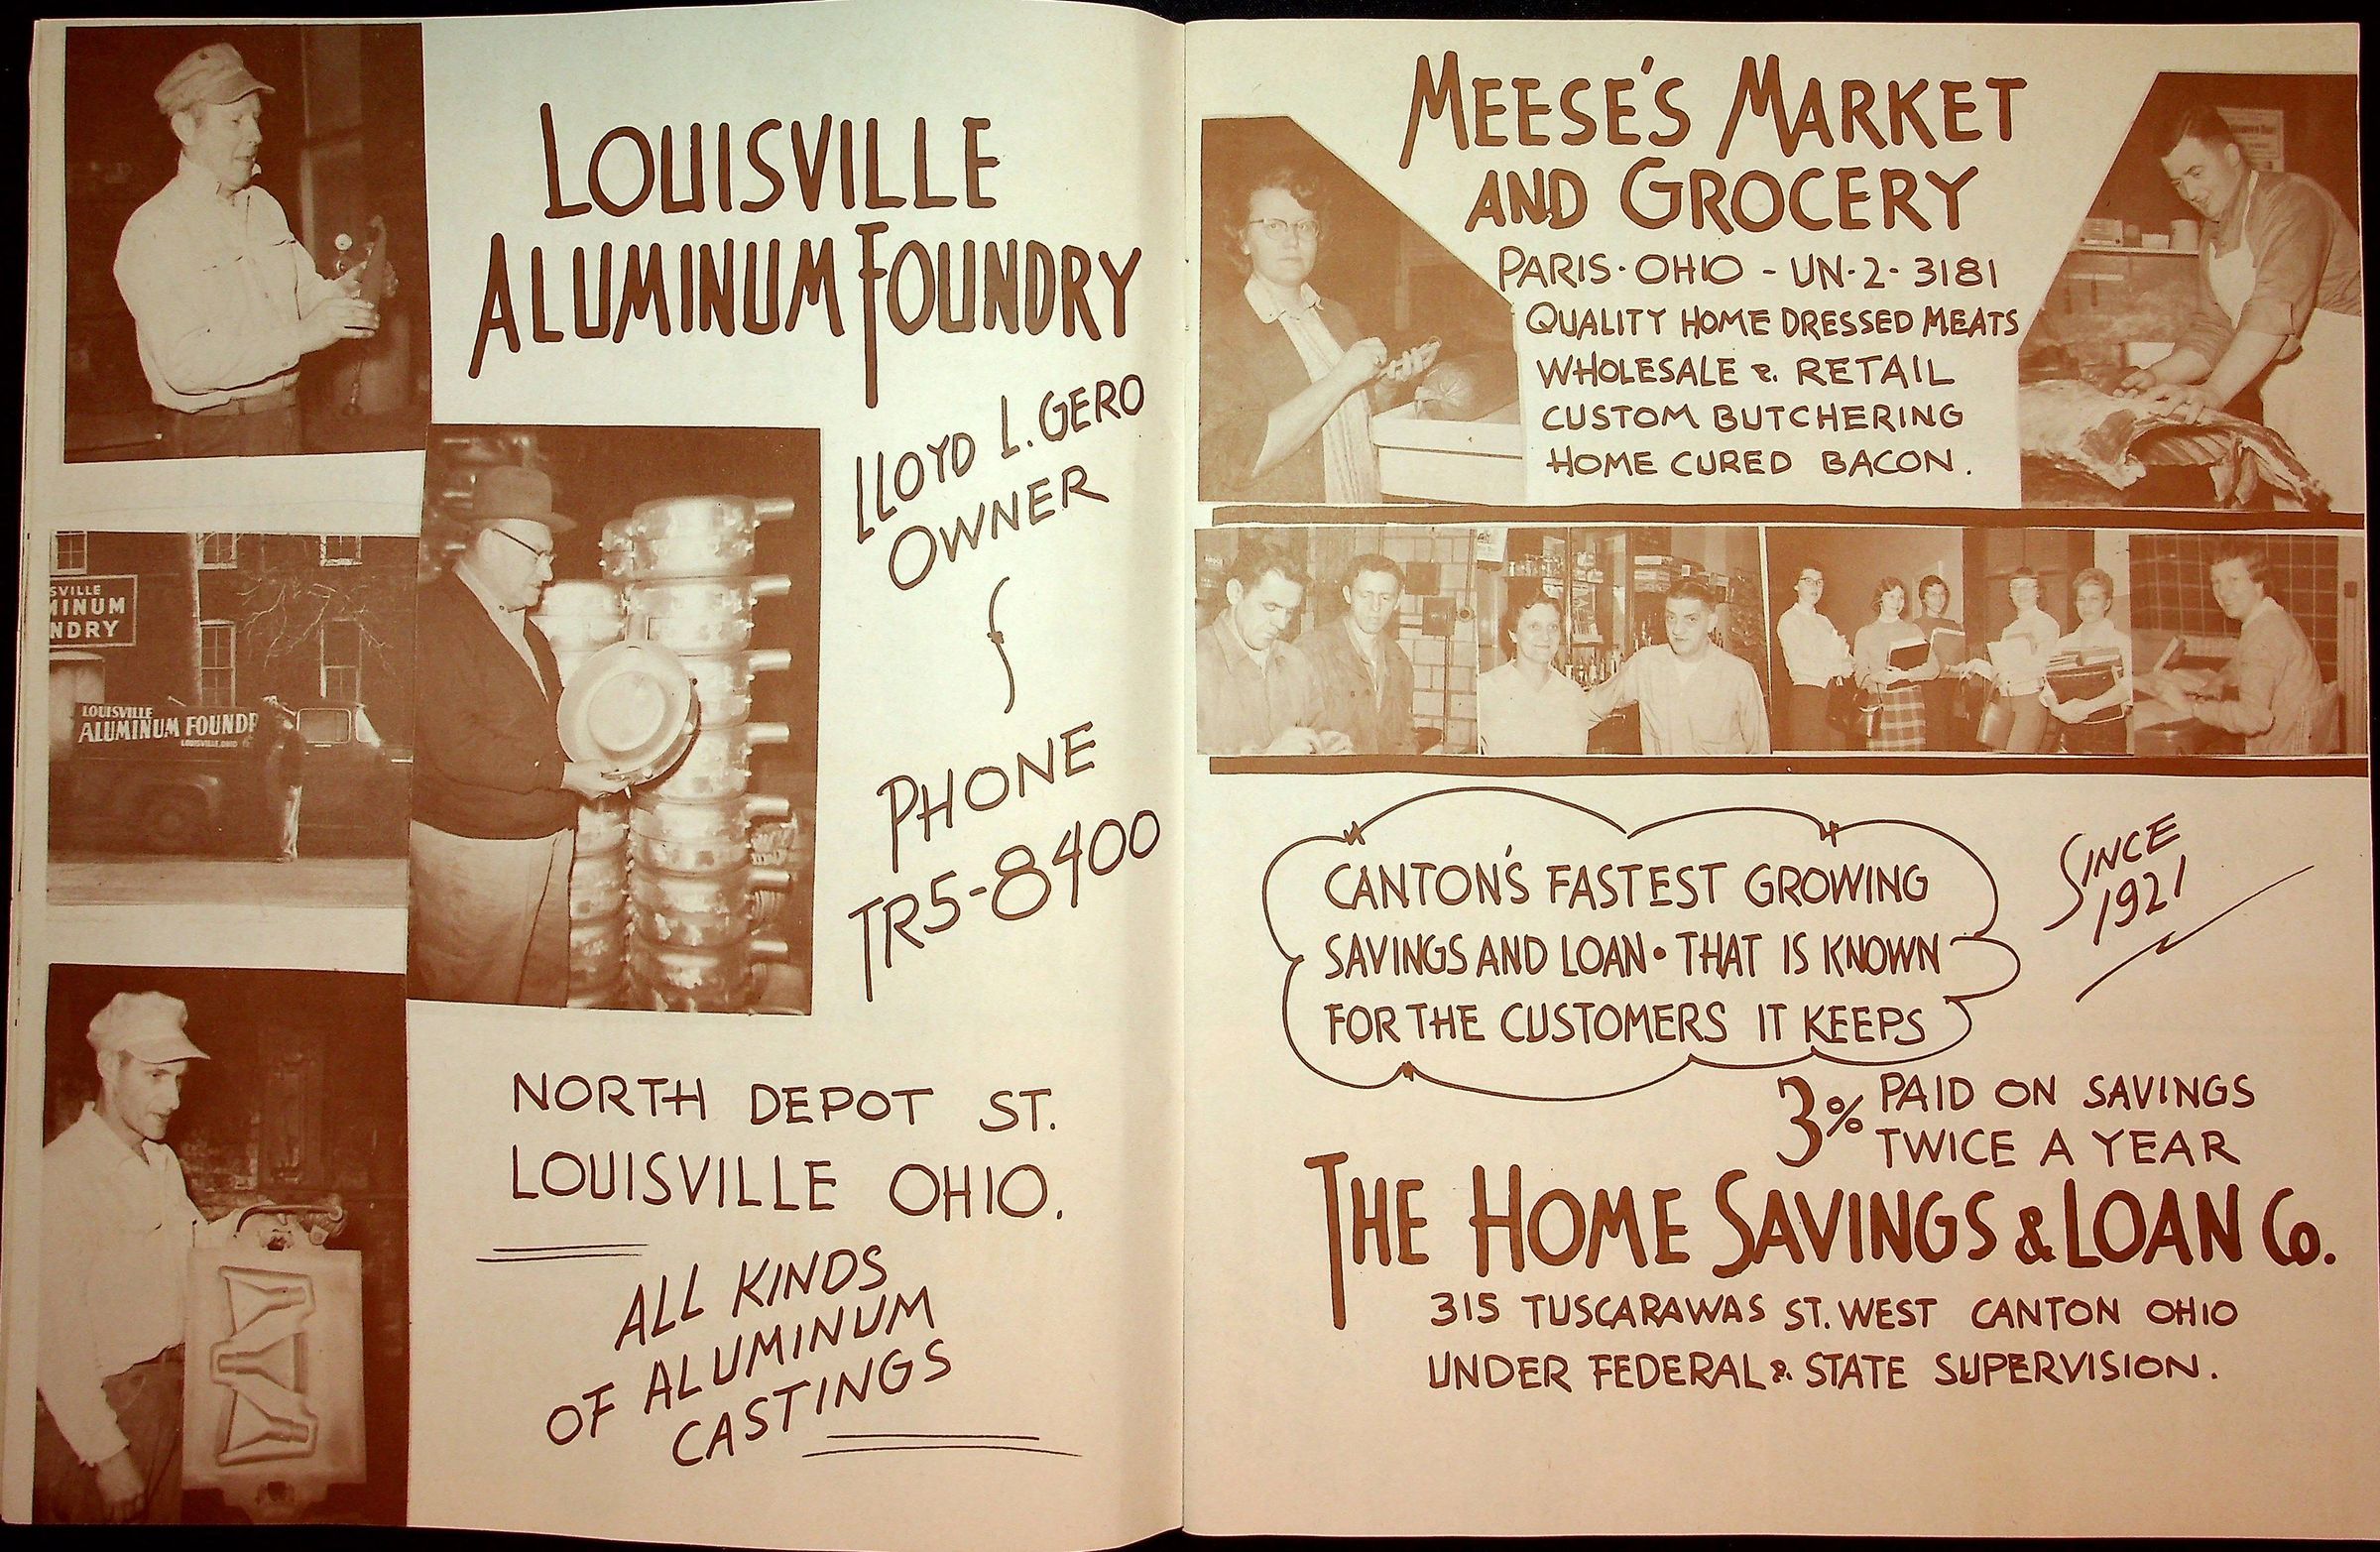 LOUISVILLE
ALUMINUM FOUNDRY
LLOYD L. GERO
OWNER
PHONE
TR5-8400
SVILLE
MINUM
NDRY
LOUISVILLE
ALUMINUM FOUNDR
LOUISVILLE, OHIO
NORTH DEPOT ST.
LOUISVILLE OHIO.
ALL KINDS
OF ALUMINUM
CASTINGS
MEESE'S MARKET
AND GROCERY
PARIS · OHIO - UN-2-3181
QUALITY HOME DRESSED MEATS
WHOLESALE & RETAIL
CUSTOM BUTCHERING
HOME CURED BACON.
CANTON'S FASTEST GROWING
SAVINGS AND LOAN • THAT IS KNOWN
FOR THE CUSTOMERS IT KEEPS
SINCE
1921
3% PAID ON SAVINGS
TWICE A YEAR
THE HOME SAVINGS & LOAN Co.
315 TUSCARAWAS ST. WEST CANTON OHIO
UNDER FEDERAL & STATE SUPERVISION.